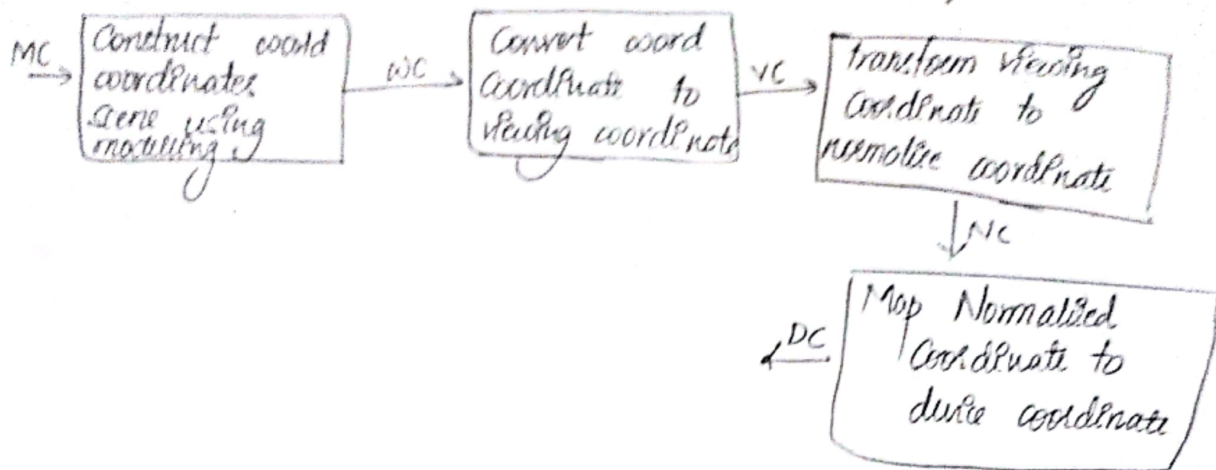 MC
Construct world
coordinates
scene using
modelling
WC
Convert word
coordinate to
viewing coordinate
VC
transform viewing
coordinate to
normalize coordinate
NC
Map Normalized
coordinate to
device coordinate
DC